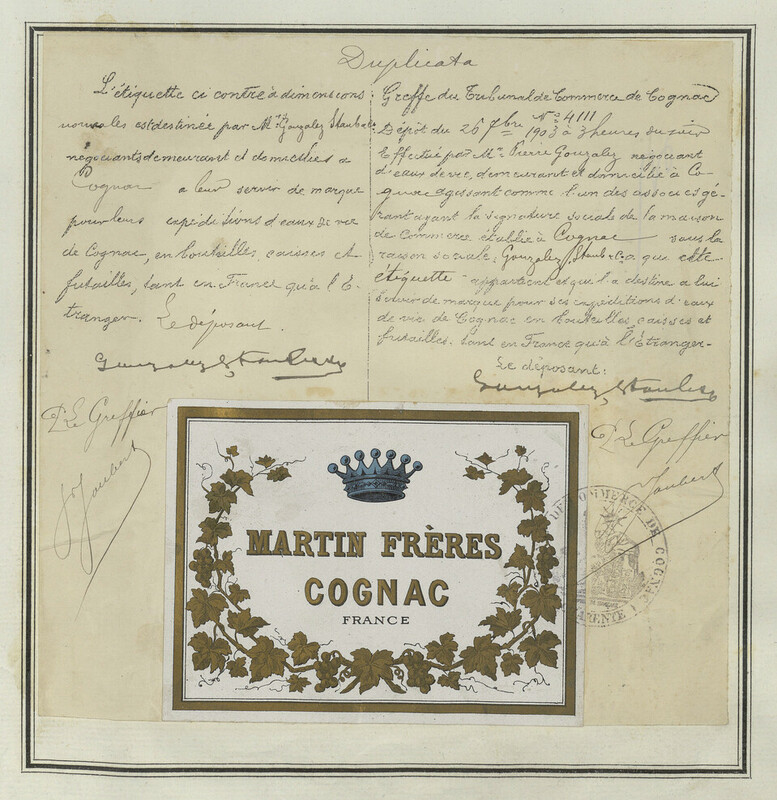 Duplicata
L'étiquette ci contre à dimensions
variables est destinée par Mrs Gonzalez Staub & Co
négociants demeurant et domiciliés à
Cognac à leur servir de marque
pour leurs expéditions d'eaux de vie
de Cognac, en bouteilles, caisses et
futailles, tant en France qu'à l'É-
tranger. Le déposant.
Gonzalez Staub & Co
P. Le Greffier
Joubert
Greffe du Tribunal de Commerce de Cognac
No 4111
Dépôt du 26 7bre 1903 à 3 heures du soir
Effectué par Mr Pierre Gonzalez négociant
d'eaux de vie, demeurant et domicilié à Co-
gnac agissant comme l'un des associés gé-
rant ayant la signature sociale de la maison
de Commerce établie à Cognac sous la
raison sociale: Gonzalez Staub & Co a que cette
étiquette appartient et qu'il a destine a lui
servir de marque pour ses expéditions d'eaux
de vie de Cognac en bouteilles, caisses et
futailles tant en France qu'à l'Étranger-
Le déposant:
Gonzalez Staub & Co
P. Le Greffier
Joubert
MARTIN FRÈRES
COGNAC
FRANCE
DE COMMERCE DE COGNAC